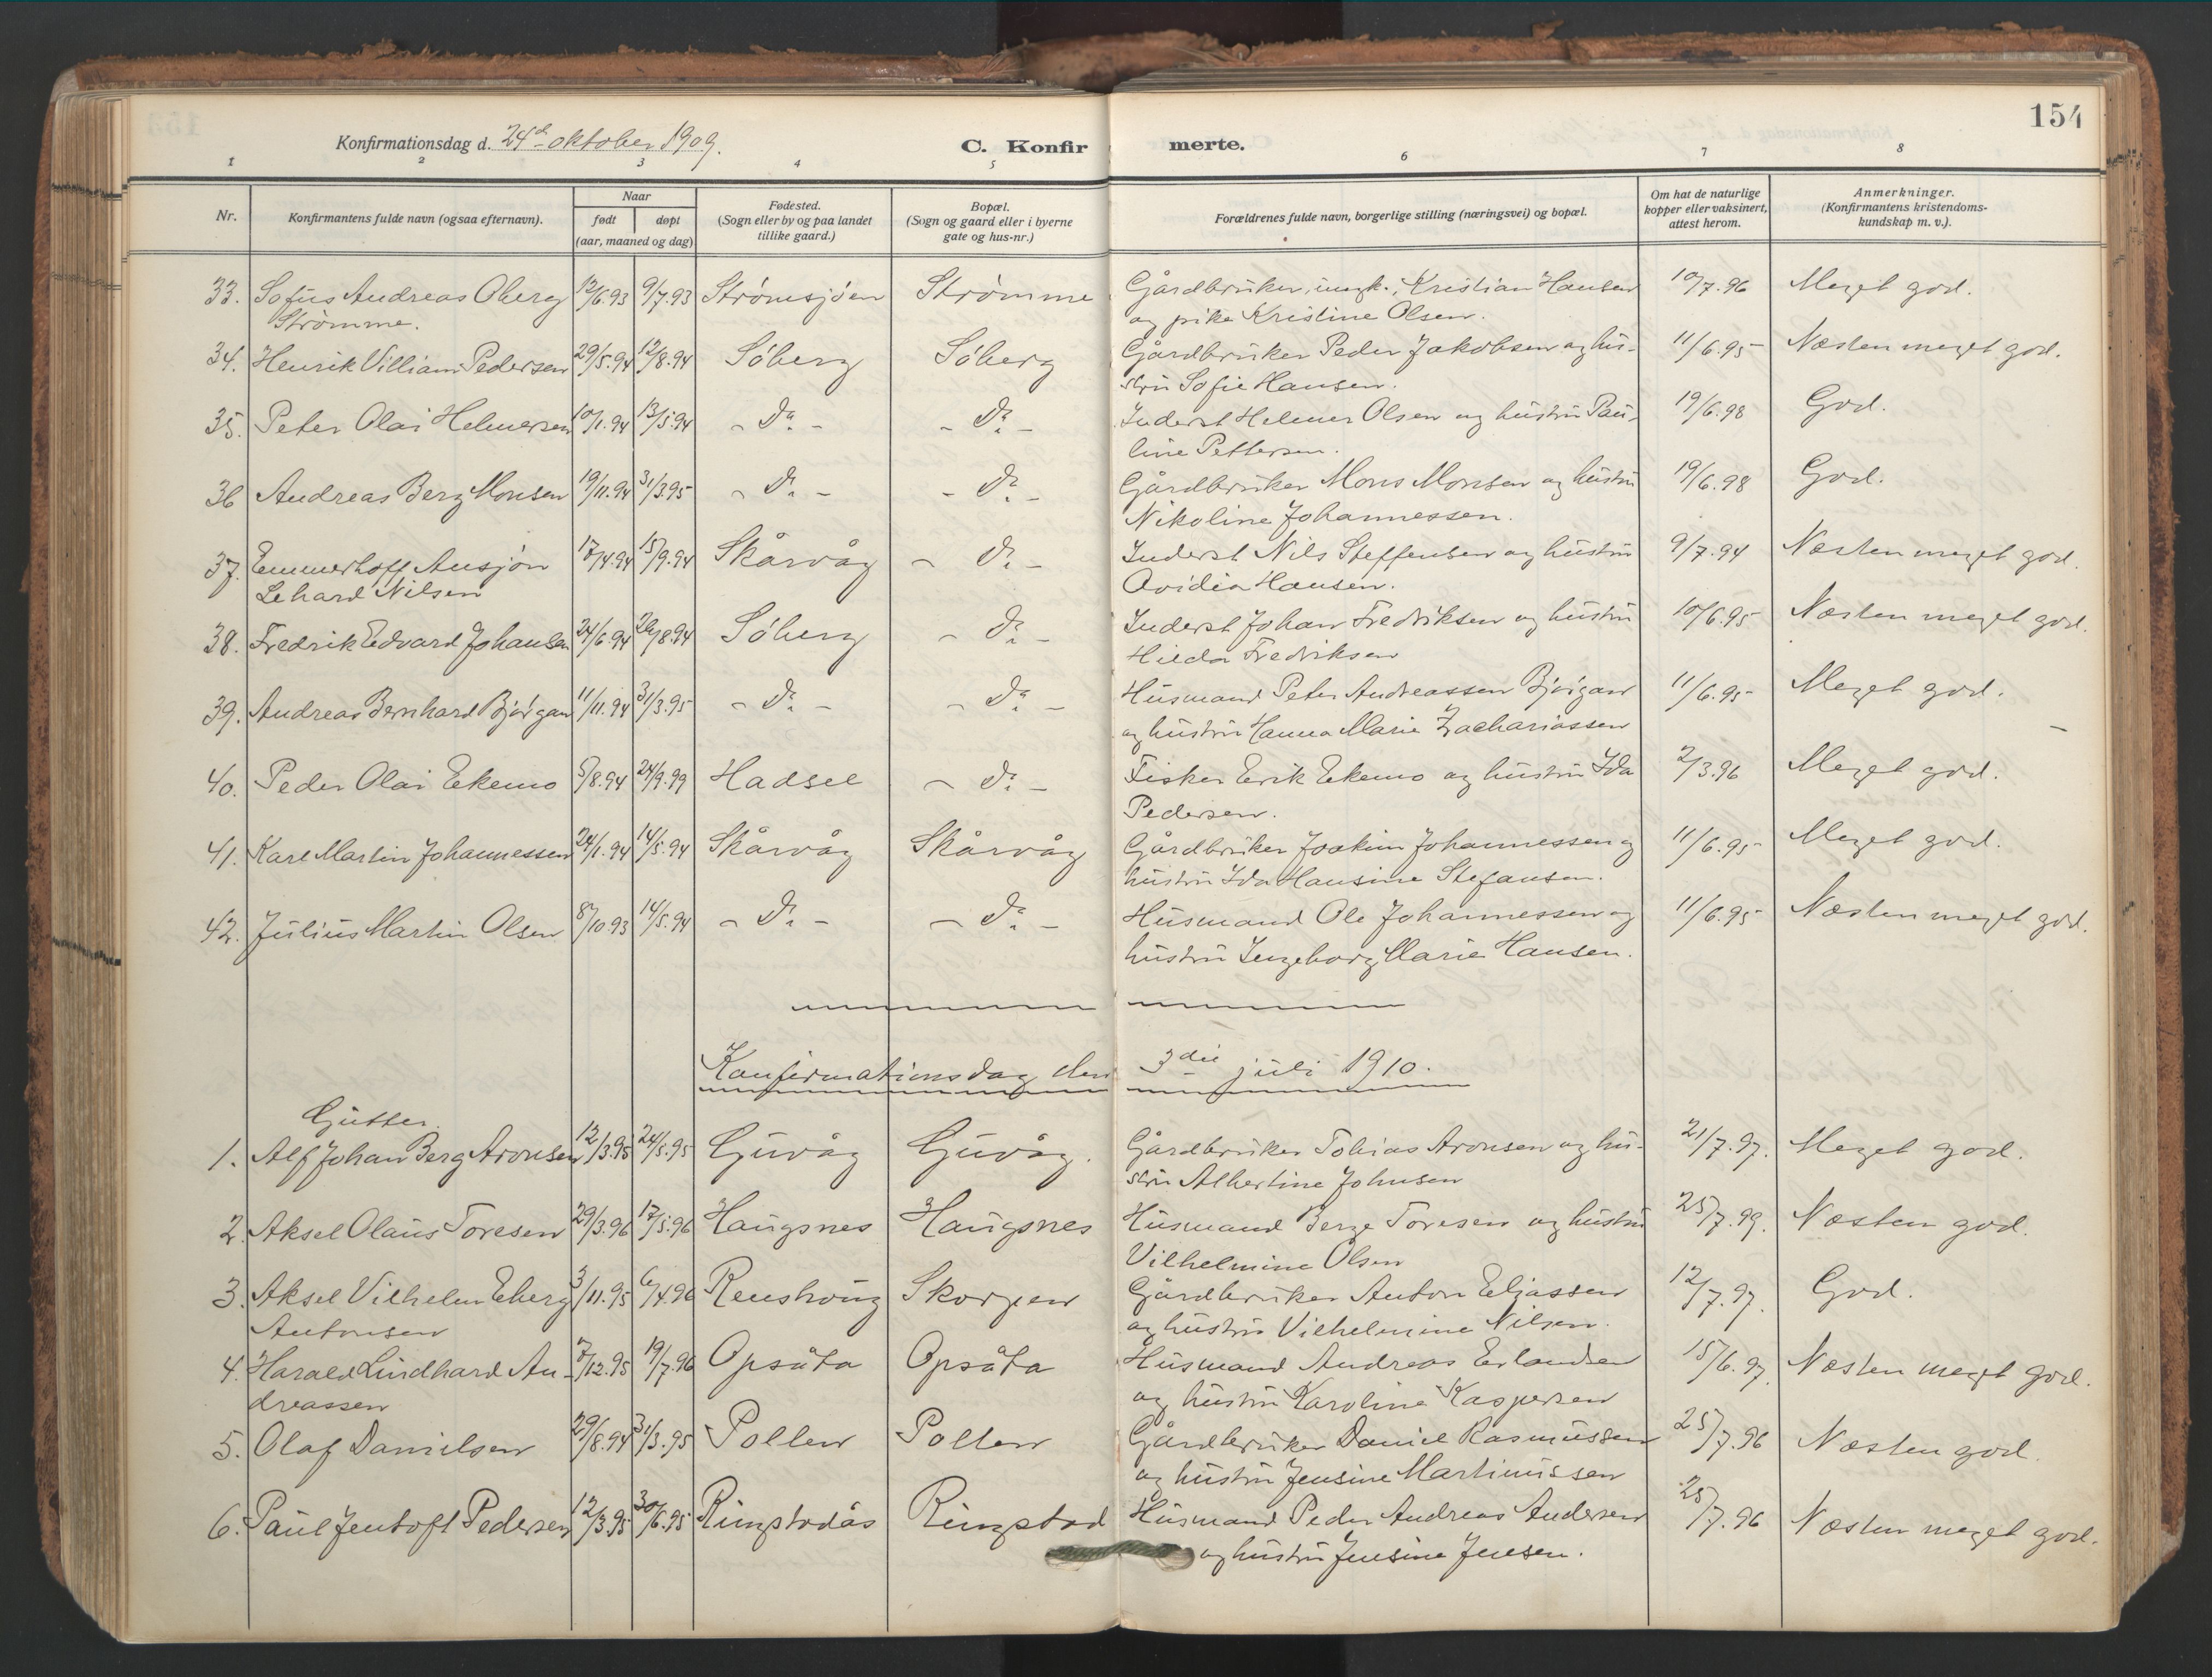 154
Konfirmationsdag d. 24d oktober 1909.
C. Konfirmerte.
1 2 3 4 5 6 7 8
Nr.
Konfirmantens fulde navn (ogsaa efternavn).
Naar
født døpt
(aar, maaned og dag)
Fødested.
(Sogn eller by og paa landet
tillike gaard.)
Bopæl.
(Sogn og gaard eller i byerne
gate og hus-nr.)
Forældrenes fulde navn, borgerlige stilling (næringsvei) og bopæl.
Om hat de naturlige
kopper eller vaksinert,
attest herom.
Anmerkninger.
(Konfirmantens kristendoms-
kundskap m. v.).
33. Sofus Andreas Oberg 12/6.93 9/7.93 Strømsjøen Strømme Gårdbruker, ungk., Kristian Hansen 10/7.96 Meget god.
Strømme. og pike Kristine Olsen.
34. Henrik Villiam Pedersen 29/5.94 12/8.94 Söberg Söberg Gårdbruker Peder Jakobsen og hu- 11/6.95 Næsten meget god.
stru Sofie Hansen.
35. Peter Olai Helmersen 10/1.94 13/5.94 - do - - do - Inderst Helmer Olsen og hustru Pau- 19/6.98 God.
line Pettersen.
36 Andreas Berg Monsen 19/11.94 31/3.95 - do - - do - Gårdbruker Mons Monsen og hustru 19/6.98 God.
Nikoline Johannessen.
37. Emmerhoff Ansjön 17/4.94 15/9.94 Skårvåg - do - Inderst Nils Steffensen og hustru 9/7.94 Næsten meget god.
Lehard Nilsen Ovidia Hansen.
38. Fredrik Edvard Johansen 24/6.94 26/8.94 Söberg - do - Inderst Johan Fredriksen og hustru 10/6.95 Næsten meget god.
Hilda Fredriksen
39. Andreas Bernhard Bjørgan 11/11.94 31/3.95 - do - - do - Husmand Peter Andreassen Bjørgan 11/6.95 Meget god.
og hustru Hanna Marie Zachariassen
40. Peder Olai Ekemo 5/8.94 24/9.99 Hadsel - do - Fisker Erik Ekemo og hustru Ida 2/3.96 Meget god.
Pedersen.
41. Karl Martin Johannessen 24/1.94 14/5.94 Skårvåg Skårvåg Gårdbruker Joakim Johannessen og 11/6.95 Meget god.
hustru Ida Hansine Stefansen.
42. Julius Martin Olsen 8/10.93 14/5.94 - do - - do - Husmand Ole Johannessen og 11/6.95 Næsten meget god.
hustru Ingeborg Marie Hansen.
Konfirmationsdag den 3die juli 1910.
Gutter.
1. Alf Johan Berg Aronsen 12/3.95 24/5.95 Guvåg Guvåg. Gårdbruker Tobias Aronsen og hu- 21/7.97. Meget god.
stru Albertine Johnsen
2. Aksel Olaus Toresen 29/3.96 17/5.96 Haugsnes Haugsnes Husmand Berge Toresen og hustru 25/7.99. Næsten god.
Vilhelmine Olsen
3. Aksel Vilhelm Eberg 3/11.95 6/4.96 Skorpen Gårdbruker Anton Eljassen 12/7.97. God.
Antonsen og hustru Vilhelmine Nilsen.
4. Harald Lindhard An- 7/12.95 19/7.96 Opsåta Opsåta Husmand Andreas Erlandsen 15/6.97. Næsten meget god.
dreassen og hustru Karoline Kaspersen
5. Olaf Danielsen 29/8.94 31/3.95 Pollen Pollen Gårdbruker Daniel Rasmussen 25/7.96 Næsten god.
og hustru Jensine Martinussen
6. Paul Jentoft Pedersen 12/3.95 30/6.95 Ringstadås Ringstad Husmand Peder Andreas Andersen 25/7.96 Næsten meget god.
og hustru Jensine Jensen.